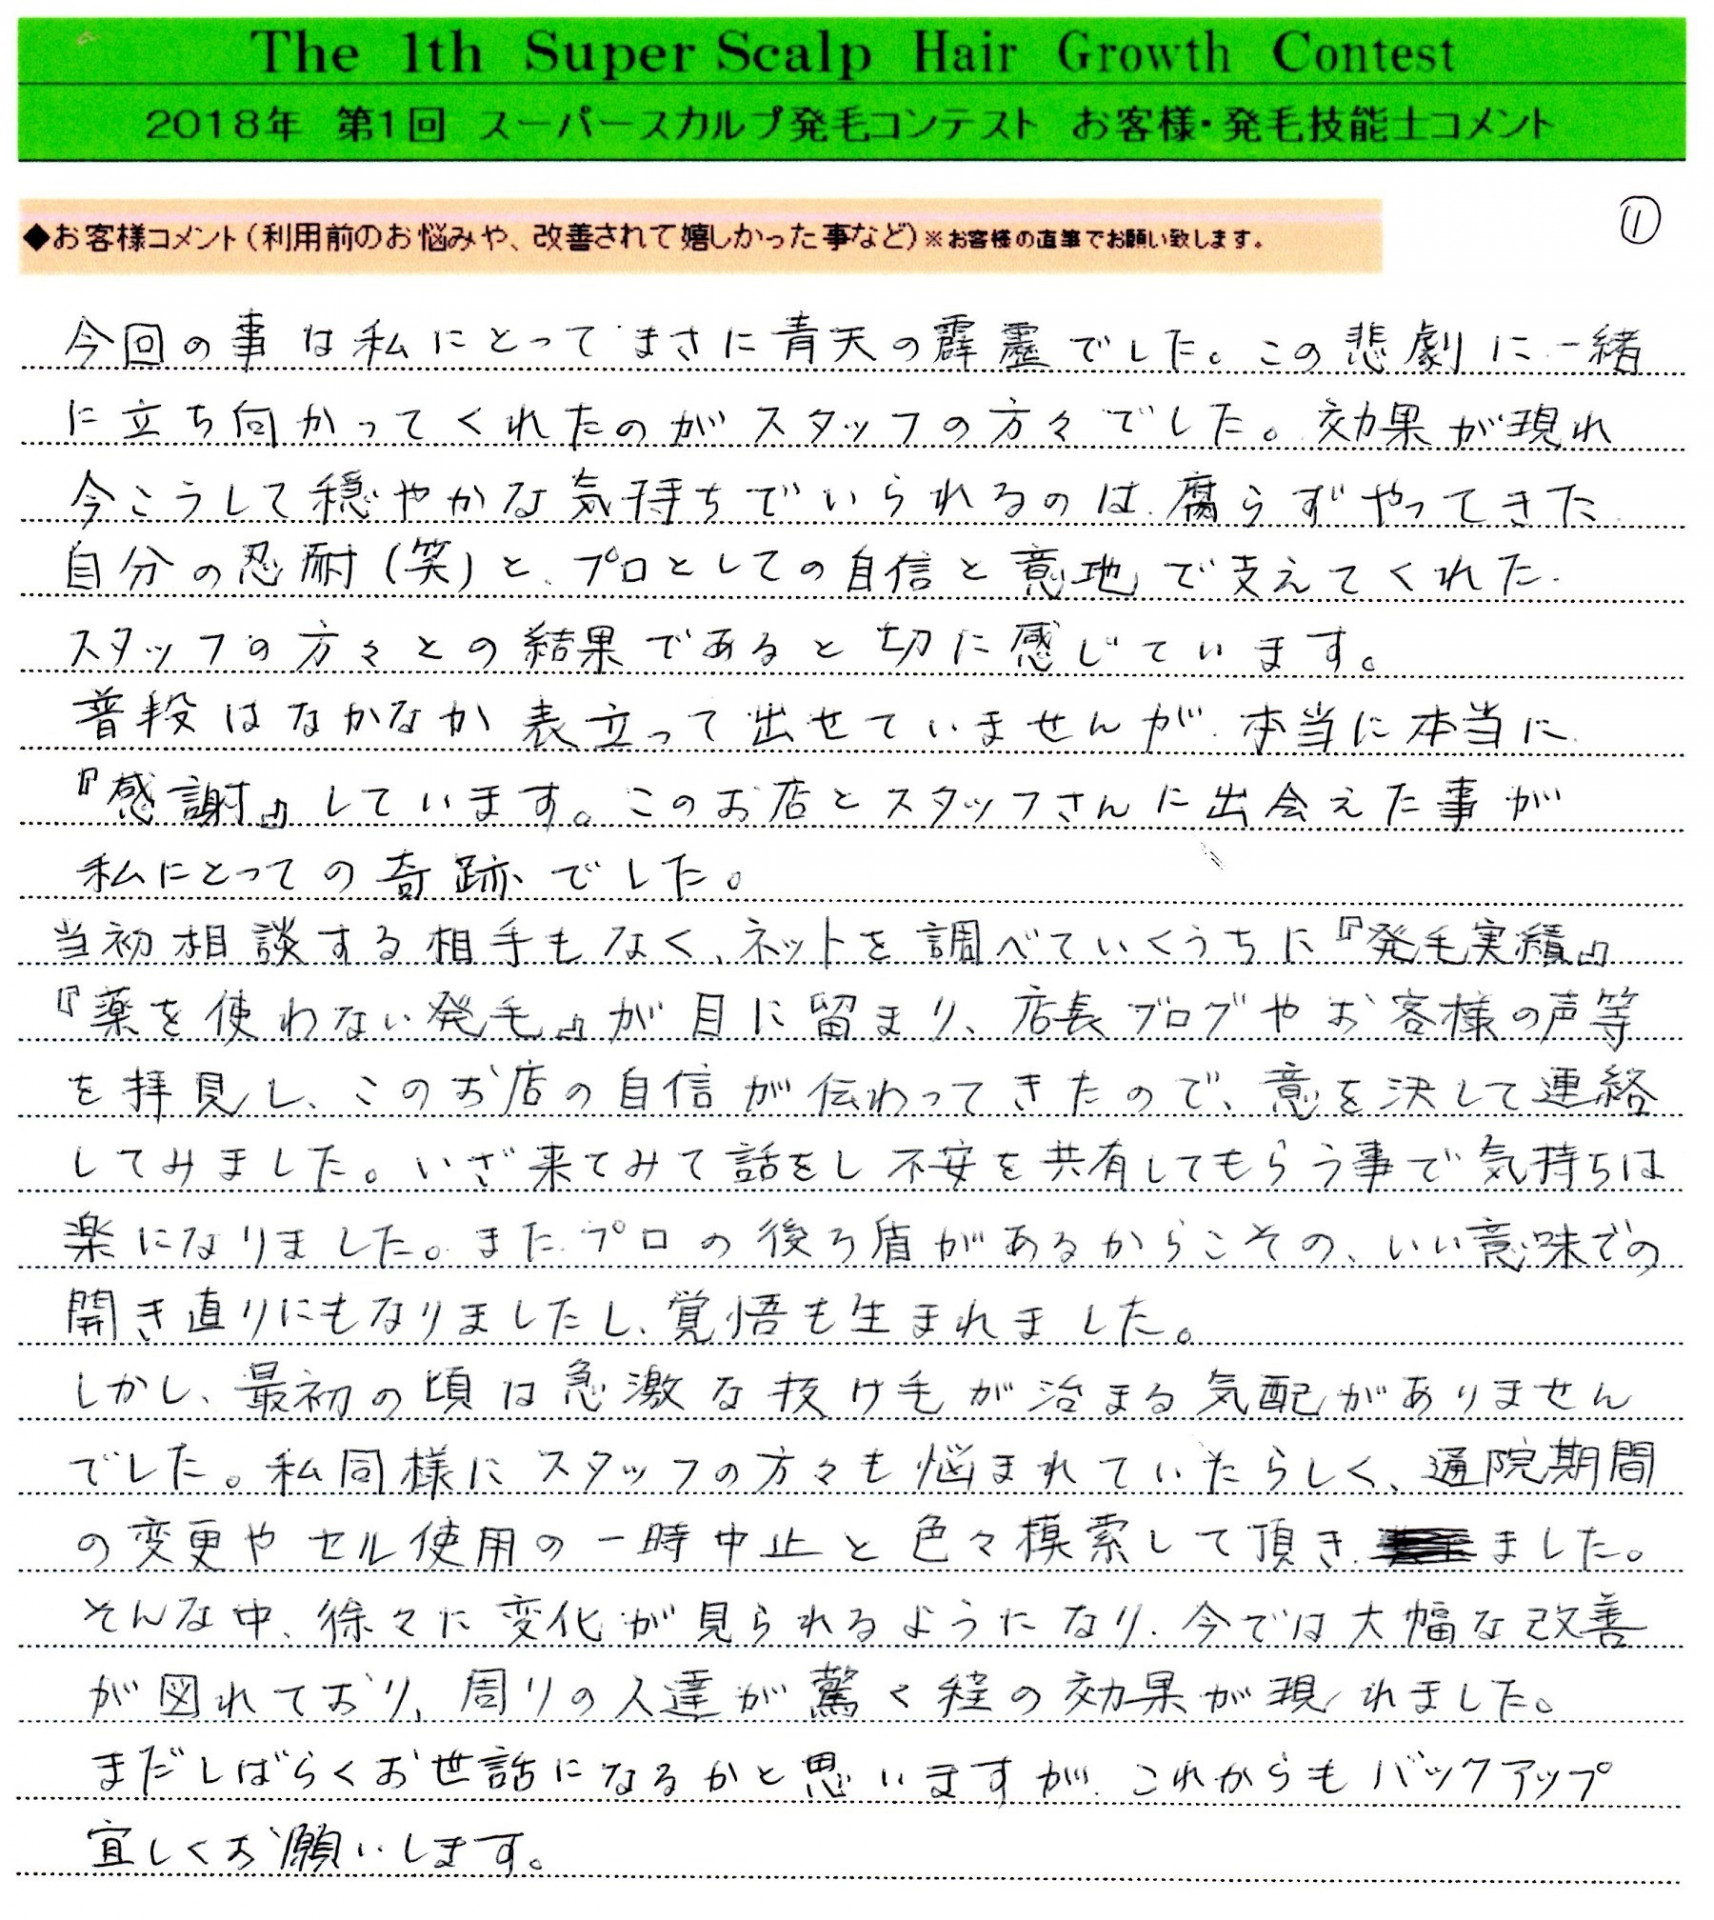 The 1th Super Scalp Hair Growth Contest
2018年 第1回 スーパースカルプ発毛コンテスト お客様・発毛技能士コメント
◆お客様コメント(利用前のお悩みや、改善されて嬉しかった事など)※お客様の直筆でお願い致します。
①
今回の事は私にとってまさに青天の霹靂でした。この悲劇に一緒
に立ち向かってくれたのがスタッフの方々でした。効果が現れ
今こうして穏やかな気持ちでいられるのは、腐らずやってきた
自分の忍耐(笑)と、プロとしての自信と意地で支えてくれた
スタッフの方々との結果であると切に感じています。
普段はなかなか表立って出せていませんが、本当に本当に
『感謝』しています。このお店とスタッフさんに出会えた事が
私にとっての奇跡でした。
当初相談する相手もなく、ネットを調べていくうちに『発毛実績』
『薬を使わない発毛』が目に留まり、店長ブログやお客様の声等
を拝見し、このお店の自信が伝わってきたので、意を決して連絡
してみました。いざ来てみて話をし不安を共有してもらう事で気持ちは
楽になりました。また、プロの後ろ盾があるからこその、いい意味での
開き直りにもなりましたし、覚悟も生まれました。
しかし、最初の頃は急激な抜け毛が治まる気配がありません
でした。私同様にスタッフの方々も悩まれていたらしく、通院期間
の変更やセル使用の一時中止と色々模索して頂きました。
そんな中、徐々に変化が見られるようになり、今では大幅な改善
が図れており、周りの人達が驚く程の効果が現れました。
まだしばらくお世話になるかと思いますが、これからもバックアップ
宜しくお願いします。